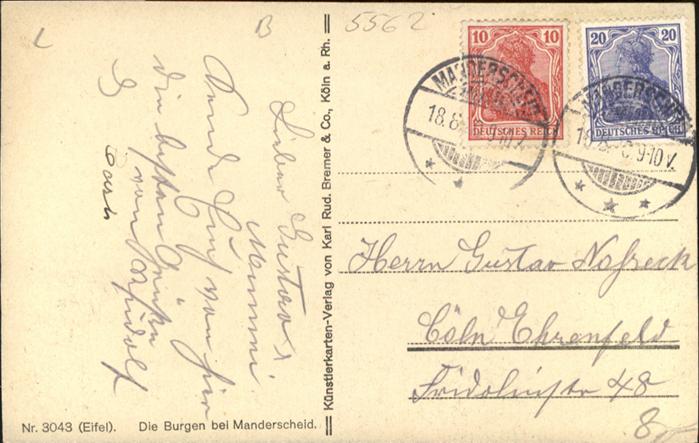 L
B
5562
10 10
DEUTSCHES REICH
20 20
DEUTSCHES REICH
MANDERSCHEID
18.8
9-10V.
MANDERSCHEID
18.8
9-10V.
Lieber Gustav &
Mimmi
Sende Euch von hier
die besten Grüße
von Rudolf
&
Künstlerkarten-Verlag von Karl Rud. Bremer & Co., Köln a. Rh.
Herrn Gustav
Cöln Ehrenfeld
Fridolinstr 48
8
Nr. 3043 (Eifel). Die Burgen bei Manderscheid.